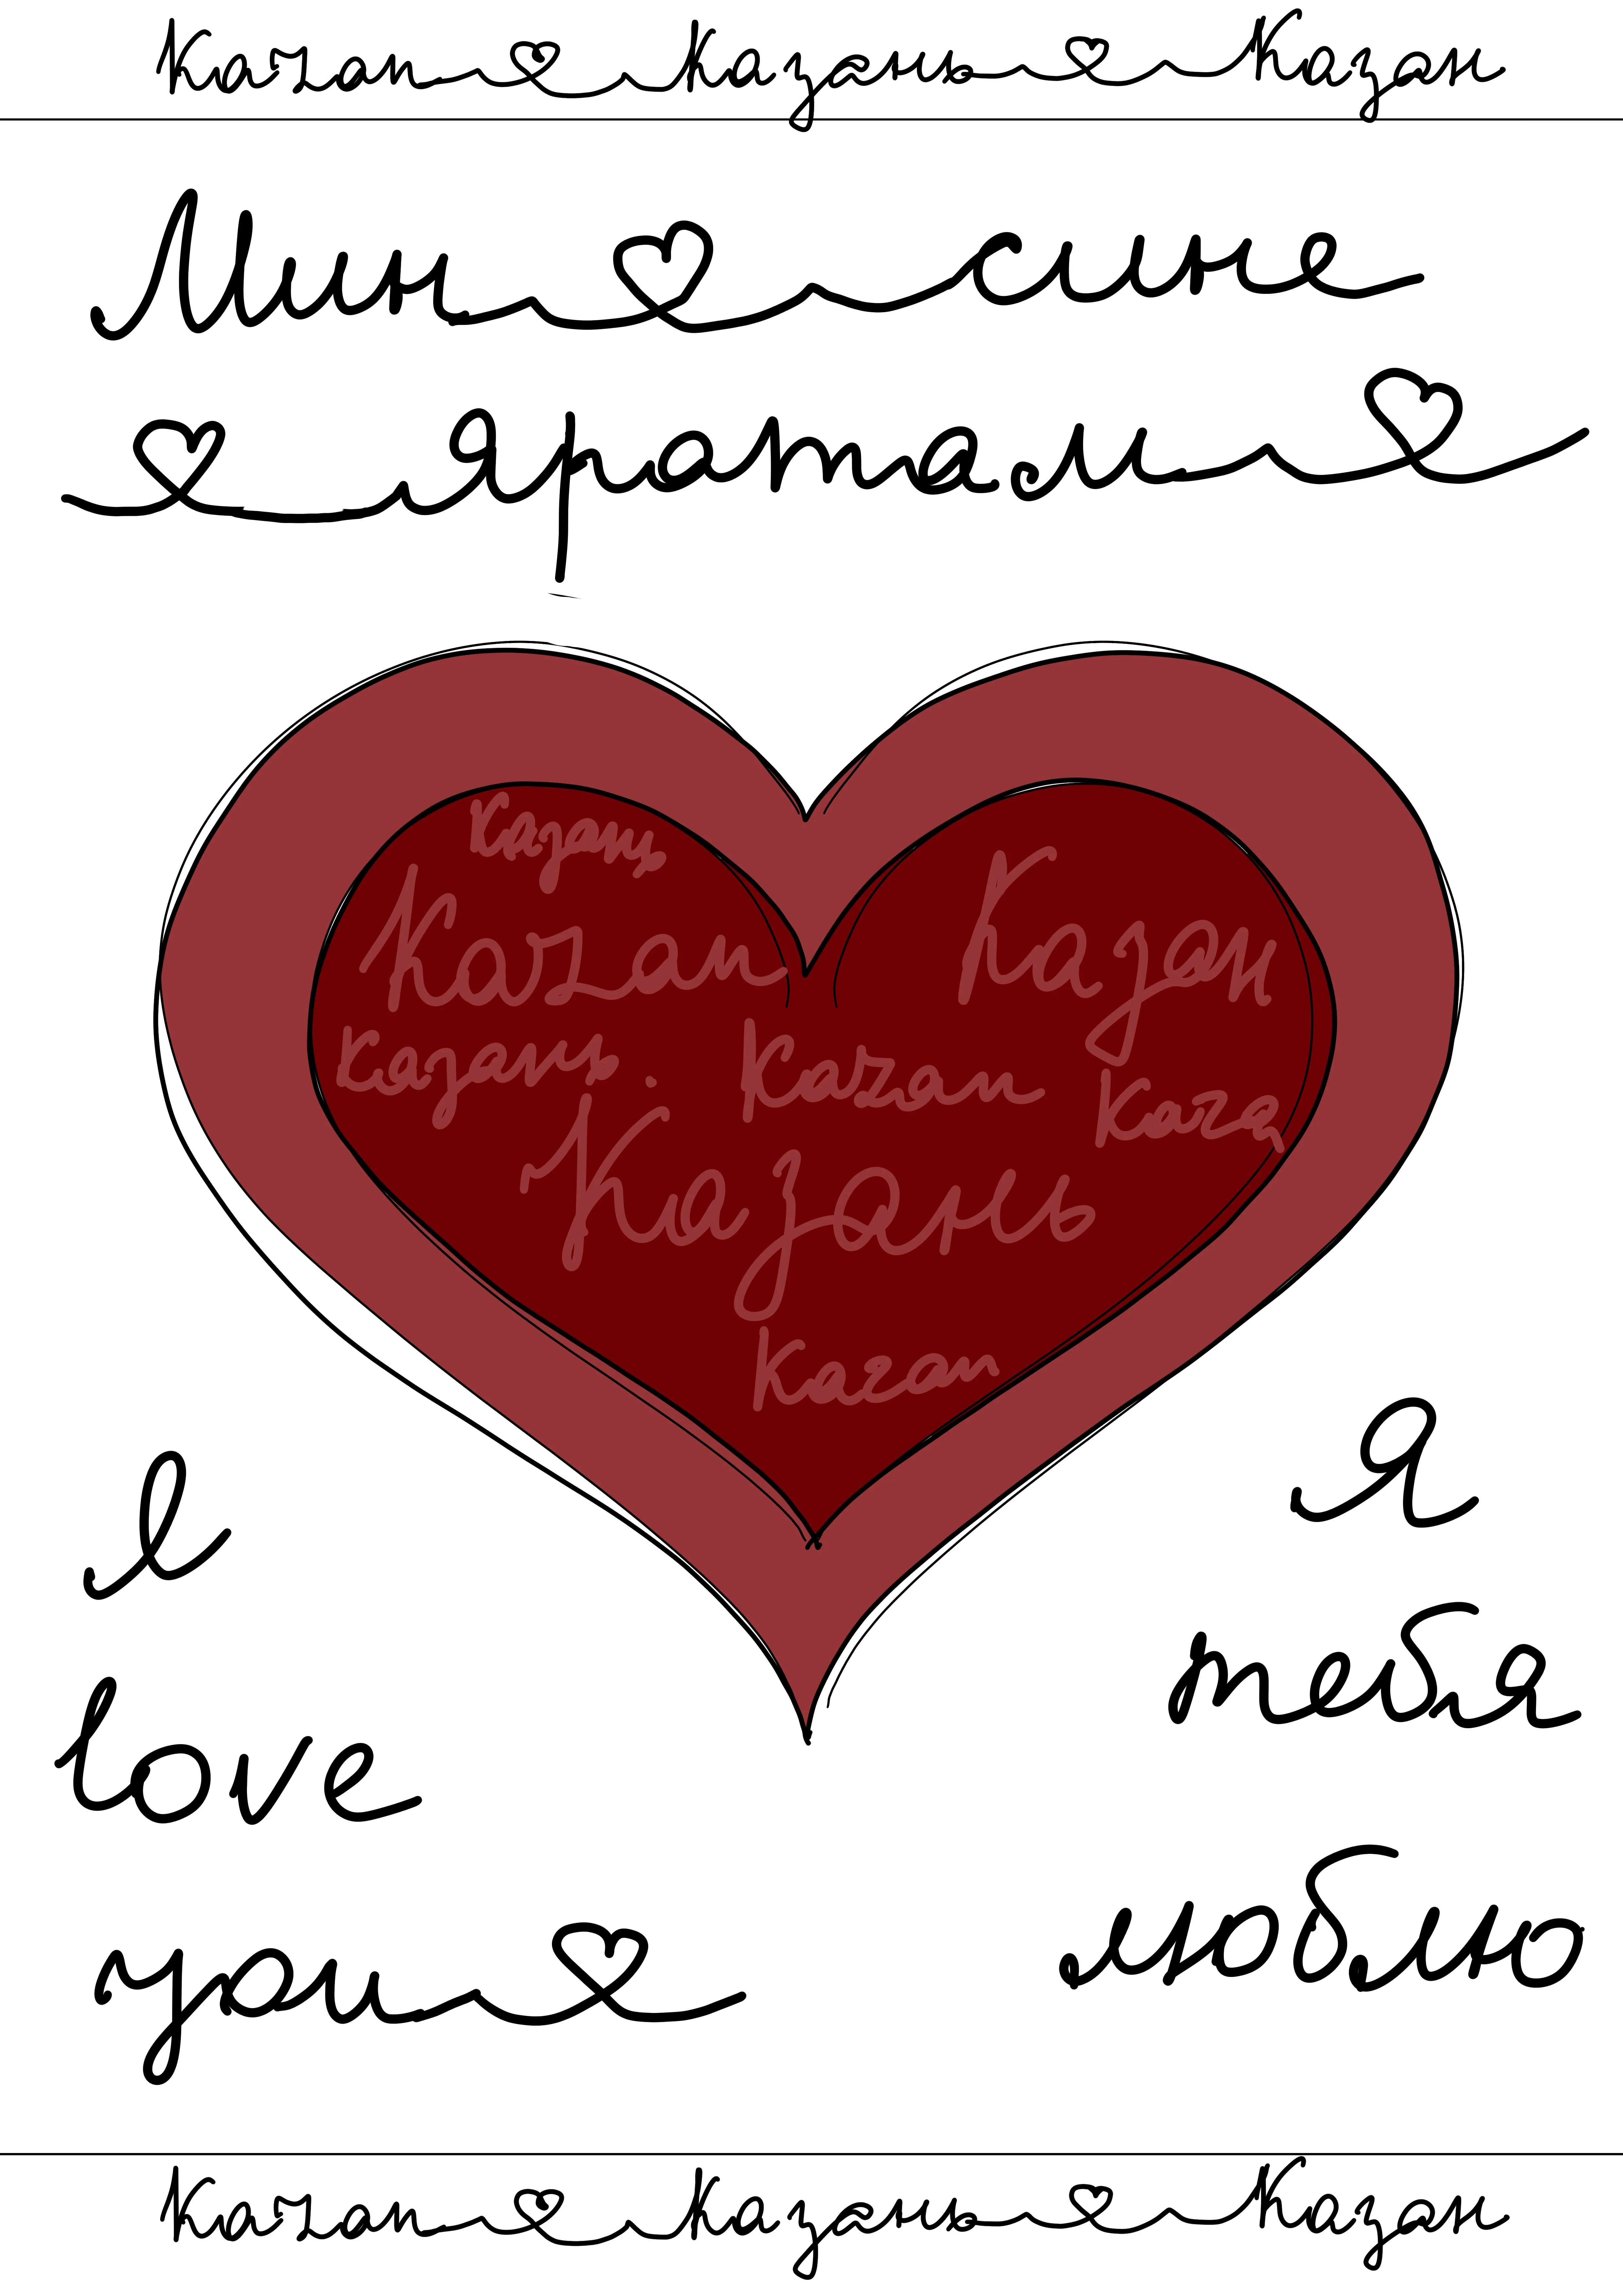 Kazan Казань Казан
Мин сине
яратам
Казань
Kazan Казан
Казань. Kazan Kaza
Казань
Kazan
I Я
love тебя
you люблю
Kazan Казань Казан